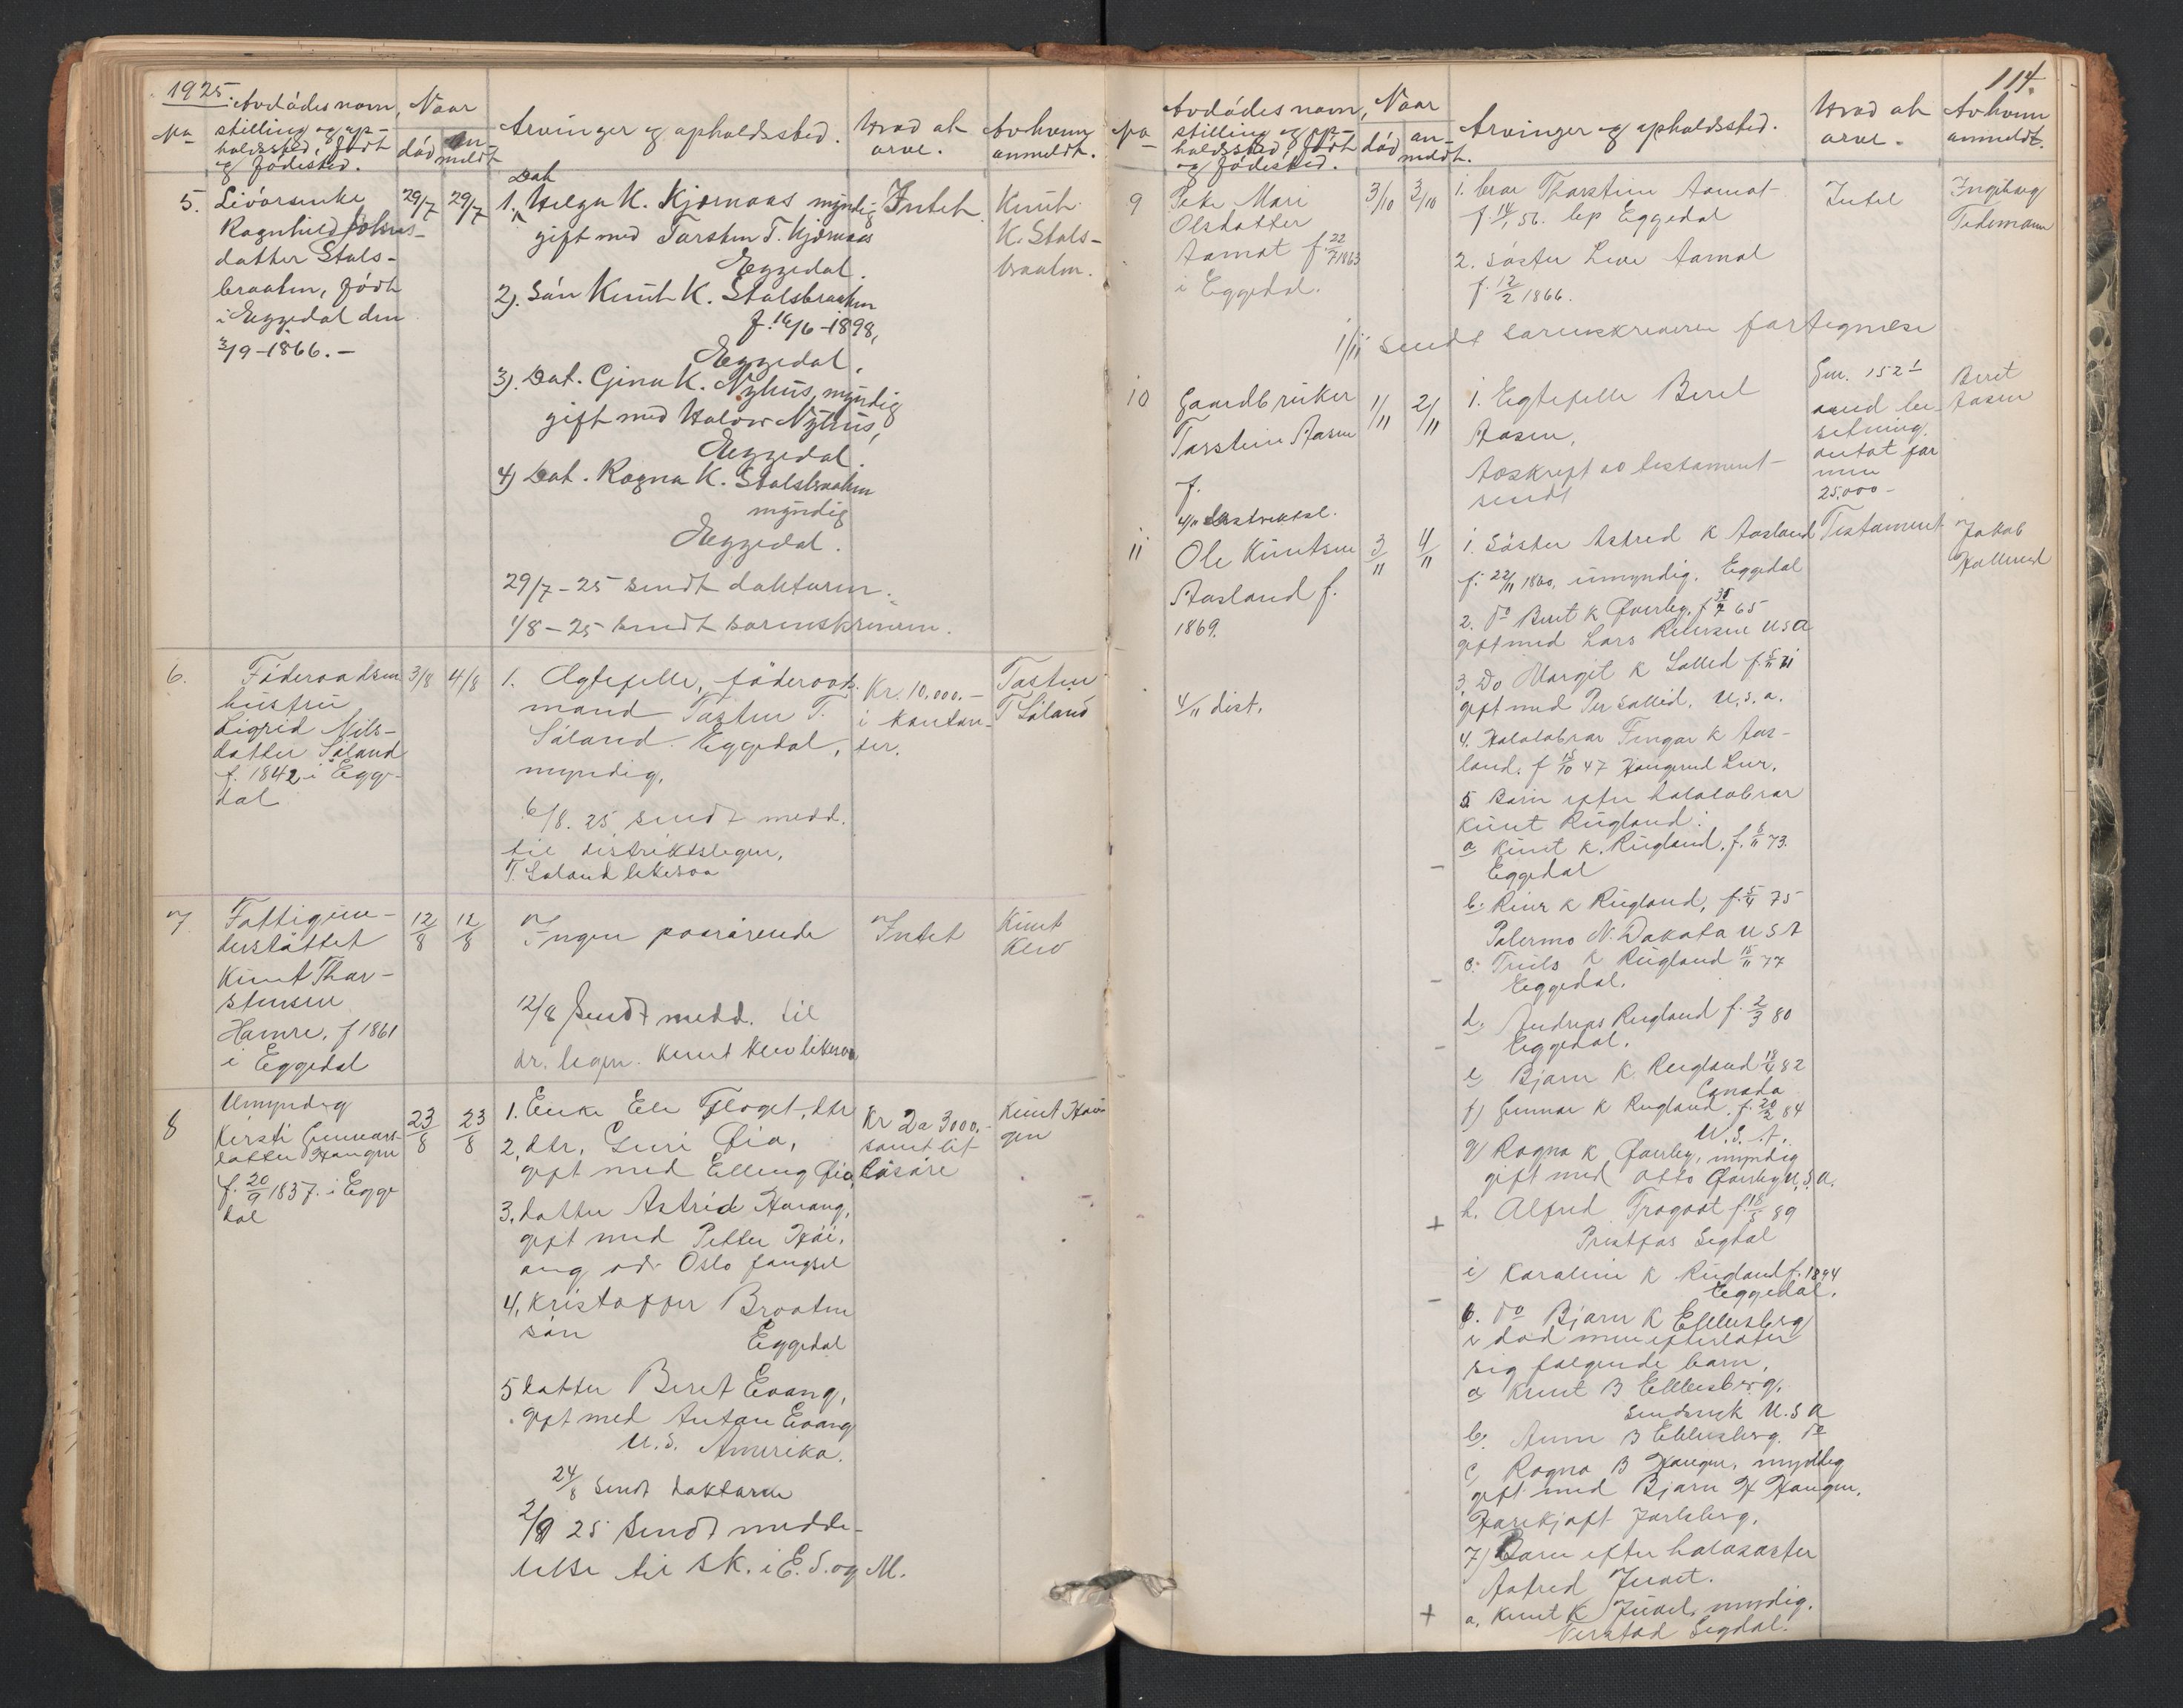 1925.
No
Avdödes navn,
stilling og op-
holdssted, født
og fødested.
Naar
død
an-
meldt
Arvinger og opholdssted.
Hvad at
arve.
Av hvem
anmeldt.
5.
Livörsenke
Ragnhild
datter Stuls-
braaten, født
i Eggedal den
3/9-1866.-
29/7
29/7
1. Dat Helga K. Kjørnaas myndig
gift med Tarsten T. Kjørnaas
Eggedal.
2). Sön Knut K. Stulsbraaten
f. 16/6-1898,
Eggedal.
3). Dat. Gina K. Nyhus, myndig
gift med Halvor Nyhus,
Eggedal.
4) Dat. Ragna K. Stulsbraaten
myndig
Eggedal.
29/7-25 sendt doktoren.
1/8-25 sendt sorenskriveren.
Intet.
Knut
K. Stuls-
braaten.
6.
Föderaadsm
hustru
Sigrid Nils-
datter Såland
f. 1842 i Egge-
dal
3/8
4/8
1. Ægtefelle, föderaads-
mand Tosten T.
Såland. Eggedal,
myndig.
6/8. 25 sendt medd.
til distriktslegen,
T. Saland likesaa
Kr. 10,000.-
i kontan-
ter.
Tosten
T Såland
7
Fattigun-
derstöttet
Knut Thor-
stensen
Hamre, f 1861
i Eggedal
12/8
12/8
Ingen paarörende
12/8 Sendt medd. til
dr. legen. Knut Klev likesaa
Intet
Knut
Klev
8
Umyndig
Kirsti Gunnars-
datter Haugen
f. 20/9 1837. i Egge
dal
23/8
23/8
1. Enke Eli Floget, dtr
2, dtr, Guri Öia,
gift med Elling Öia,
3, datter Astrid Hauang,
gift med Petter Hau-
ang ved Oslo fængsel
4, Kristoffer Braaten
sön
Eggedal
5 datter Beret Evang,
gift med Anton Evang
U.S. Amerika.
24/8 sendt doktoren
2/9 25 Sendt medde-
lelse til sk. i E. S. og M.
Kr 2 a 3000,-
samt lit
lösöre
Knut Hau
gen
114.
No
Avdödes navn,
stilling og op-
holdssted, født
og fødested.
Naar
død
an-
meldt.
Arvinger og opholdssted.
Hvad at
arve.
Av hvem
anmeldt.
9
Mari
Olsdatter
Aamot f. 22/7 1863
i Eggedal.
3/10
3/10
1. bror Thorstein Aamot
f. 14/1 56. Eggedal
2. söster Live Aamot
f. 12/2 1866.
1/11 sendt sorenskriveren fortegnelse
Intet
Ingeborg
Tidemann
10
Gaardbruker
Torstein Aasen
f.
4/11 distriktsl.
1/11
2/11
1. Egtefelle Beret
Aasen,
Avskrift av testament
sendt
Gnr. 152 1
med be-
setning.
antat for
25,000-
Beret
Aasen
11
Ole Knutsen
Aasland f.
1869.
4/11 dist.
3/11
4/11
1. Söster Astrid K Aasland
f. 22/11 1860, umyndig. Eggedal
2. do Beret K Qverley, f 65
gift med Lars USA
3. Do Margit K Sallid
gift med Per Sallid. U.S.a.
4. Halvbror Fingar K Aas-
land. f 15/10 47 Haugerud Lier.
5 Barn efter halvbror
Knut Rugland:
a Knut K. Rugland. f. 6/11 73.
Eggedal
b. K Rugland, f. 75
Palermo N. Dakota USA
c. Truls K Rugland 77
Eggedal.
d. Andreas Rugland f. 2/3 80
Eggedal.
e Bjørn K. Rugland 82
Canada
f) Gunnar K Rugland. f. 20/2 84
U.S.A.
g) Ragna K Qverley, myndig
gift med Otto Qverley U.S.A.
h. Alfred f. 89
Prestfos Sigdal
i) Karoline K Rugland f. 1894
Eggedal.
6. do Bjørn K Ellensberg
er död men efterlater
sig folgende barn.
a Knut B Ellensberg.
U.S a
b. Anne B Ellensberg. do
c, Ragna B Haugen, myndig
gift med Bjørn H Haugen.
Jarlsberg.
7) Barn efter halvsöster
Astrid Juvet.
a, Knut K Juvet, myndig.
Nerstad Sigdal.
Testament
Jakob